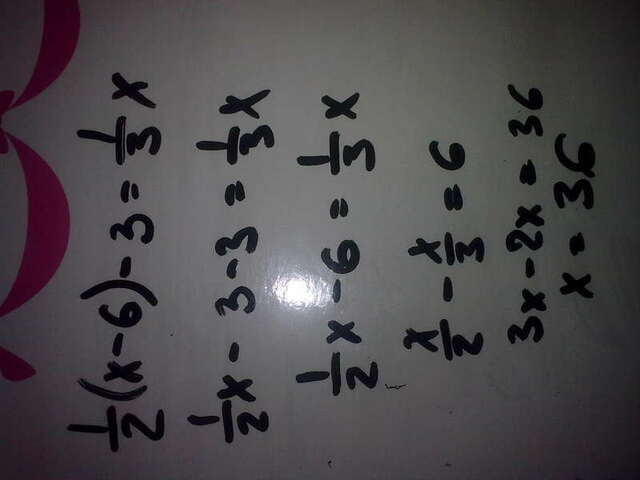 1/2(x-6)-3=1/3x
1/2x-3-3=1/3x
1/2x-6=1/3x
x/2-x/3=6
3x-2x=36
x=36